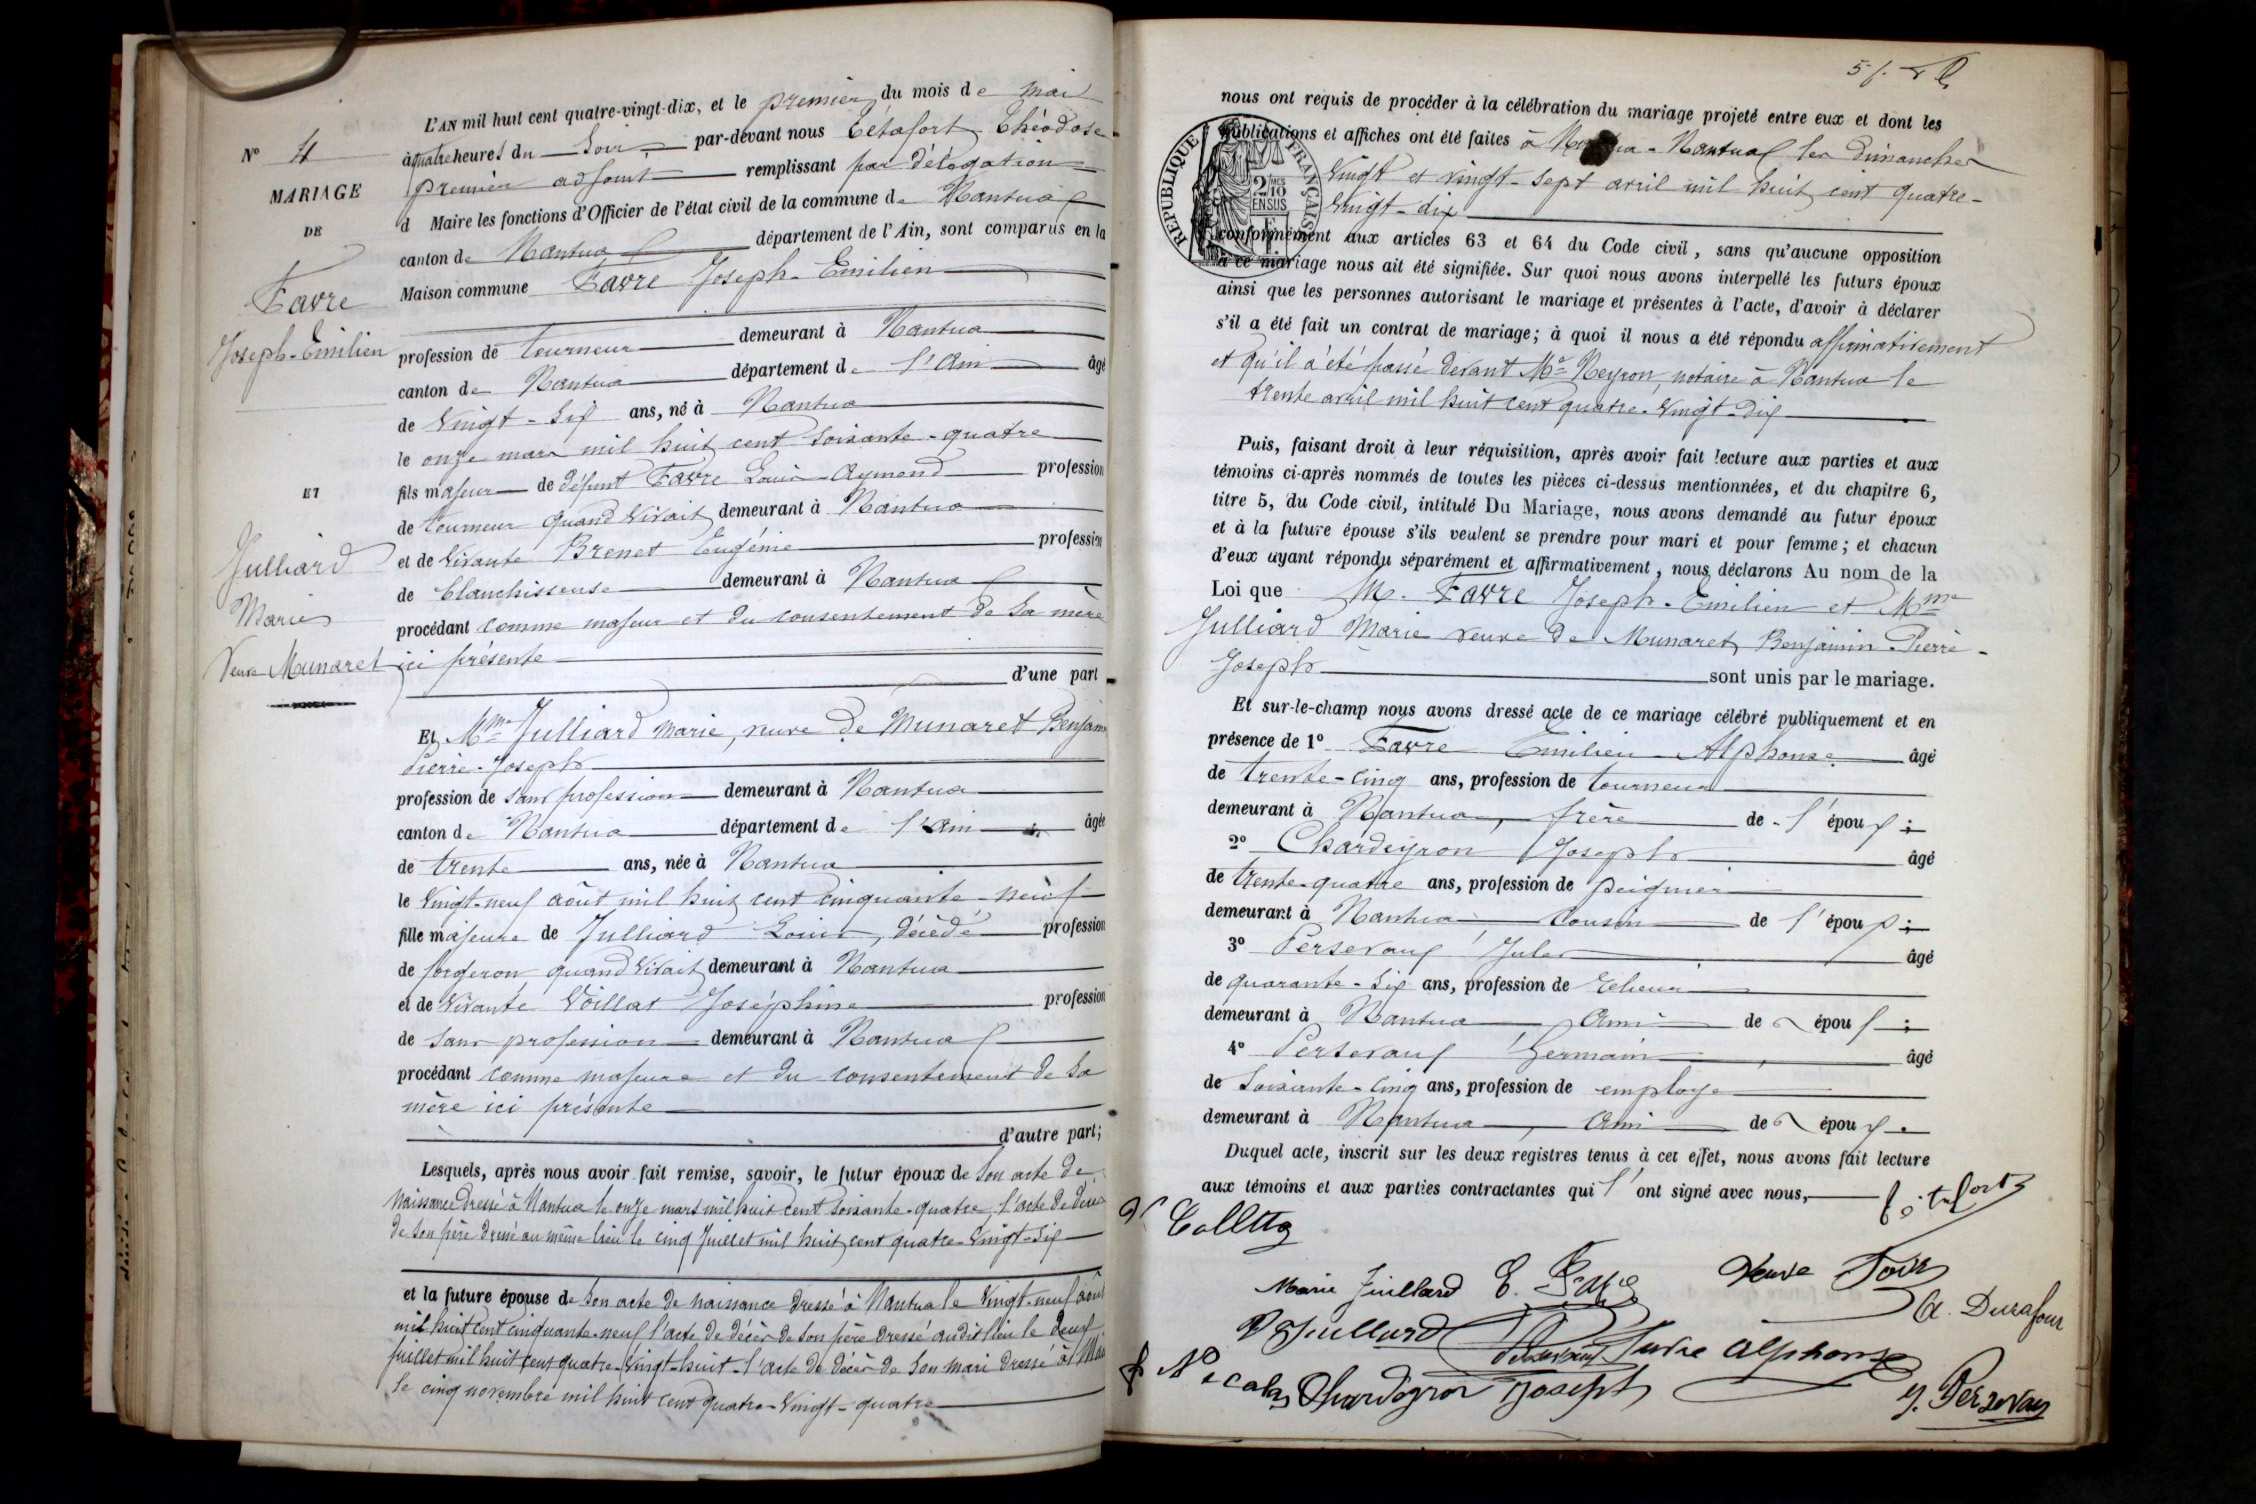 L'AN mil huit cent quatre-vingt-dix, et le premier du mois de mai
à quatre heures du Soir par-devant nous Tétafort Théodose
premier adjoint remplissant par délégation
d Maire les fonctions d'Officier de l'état civil de la commune de Nantua
canton de Nantua département de l'Ain, sont comparus en la
Maison commune Favre Joseph-Emilien
profession de tourneur demeurant à Nantua
canton de Nantua département de l'Ain âgé
de vingt-six ans, né à Nantua
le onze mars mil huit cent soixante-quatre
fils majeur de défunt Favre Louis-Aymond profession
de tourneur quand vivait demeurant à Nantua
et de vivante Brenet Eugénie profession
de blanchisseuse demeurant à Nantua
procédant comme majeur et du consentement de sa mère
ici présente
d'une part
Et Mme Julliard Marie, veuve de Munaret Benjamin
Pierre-Joseph
profession de sans profession demeurant à Nantua
canton de Nantua département de l'Ain âgée
de trente ans, née à Nantua
le vingt-neuf août mil huit cent cinquante-neuf
fille majeure de Julliard Louis, décédé profession
de forgeron quand vivait demeurant à Nantua
et de vivante Voillat Joséphine profession
de sans profession demeurant à Nantua
procédant comme majeure et du consentement de sa
mère ici présente
d'autre part;
Lesquels, après nous avoir fait remise, savoir, le futur époux de son acte de
naissance dressé à Nantua le onze mars mil huit cent soixante-quatre, l'acte de décès
de son père dressé au même lieu le cinq Juillet mil huit cent quatre-vingt-six
et la future épouse de son acte de naissance dressé à Nantua le vingt-neuf août
mil huit cent cinquante-neuf l'acte de décès de son père dressé audit lieu le deux
juillet mil huit cent quatre-vingt-huit - l'acte de décès de son mari dressé à
le cinq novembre mil huit cent quatre-vingt-quatre
No 4
MARIAGE
DE
Favre
Joseph-Emilien
ET
Julliard
Marie
Veuve Munaret
nous ont requis de procéder à la célébration du mariage projeté entre eux et dont les
publications et affiches ont été faites à Nantua les dimanches
vingt et vingt-sept avril mil huit cent quatre-
vingt-dix
conformément aux articles 63 et 64 du Code civil, sans qu'aucune opposition
à ce mariage nous ait été signifiée. Sur quoi nous avons interpellé les futurs époux
ainsi que les personnes autorisant le mariage et présentes à l'acte, d'avoir à déclarer
s'il a été fait un contrat de mariage; à quoi il nous a été répondu affirmativement
et qu'il a été passé devant Me Neyron, notaire à Nantua le
trente avril mil huit cent quatre-vingt-dix
Puis, faisant droit à leur réquisition, après avoir fait lecture aux parties et aux
témoins ci-après nommés de toutes les pièces ci-dessus mentionnées, et du chapitre 6,
titre 5, du Code civil, intitulé Du Mariage, nous avons demandé au futur époux
et à la future épouse s'ils veulent se prendre pour mari et pour femme; et chacun
d'eux ayant répondu séparément et affirmativement, nous déclarons Au nom de la
Loi que M. Favre Joseph-Emilien et Mme
Julliard Marie veuve de Munaret Benjamin-Pierre-
Joseph sont unis par le mariage.
Et sur-le-champ nous avons dressé acte de ce mariage célébré publiquement et en
présence de 1° Favre Emilien Alphonse âgé
de trente-cinq ans, profession de tourneur
demeurant à Nantua, frère de l'époux;
2° Chardeyron Joseph âgé
de trente-quatre ans, profession de peignier
demeurant à Nantua, cousin de l'époux;
3° Persevaux Jules âgé
de quarante-six ans, profession de relieur
demeurant à Nantua, ami de époux;
4° Persevaux Germain âgé
de soixante-cinq ans, profession de employé
demeurant à Nantua, ami de époux.
Duquel acte, inscrit sur les deux registres tenus à cet effet, nous avons fait lecture
aux témoins et aux parties contractantes qui l'ont signé avec nous,
RÉPUBLIQUE FRANÇAISE
2 10MES
EN SUS
Marie Juillard
Veuve
A. Durafour
Favre Alphonse
Chardeyron Joseph